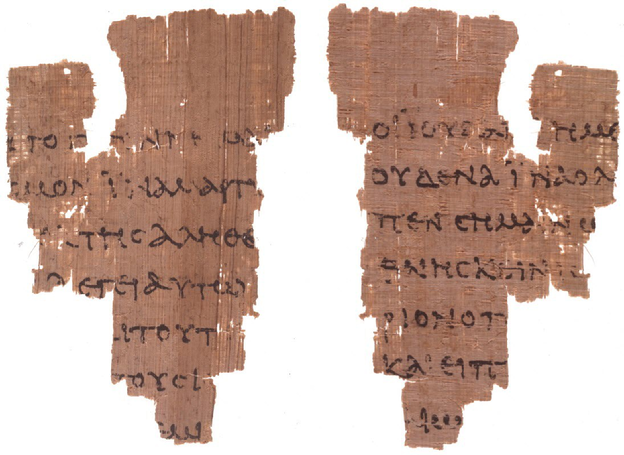 ΤΟ Γ ΕΝΝΗΜΑΙ
ϹΜΟΝ ΪΝΑ ΜΑΡΤΥ
ΤΗϹ ΑΛΗΘΕ
ΛΕΓΕΙ ΑΥΤΩ
ΑΙ ΤΟΥΤ
ΤΟΥϹ Ι
ΟΙ ΪΟΥΔΑΙ ΗΜΕ
ΟΥΔΕΝΑ ΪΝΑ Ο Λ
ΠΕΝ ϹΗΜΑΙΝΩ
ΘΝΗϹΚΕΙΝ
ΡΙΟΝ Ο Π
ΚΑΙ ΕΙΠ